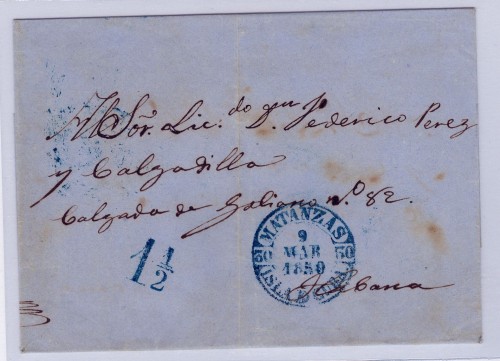 Al Sõr. Lic.do Dn. Federico Perez
y Calzadilla
Calzada de Galiano N.o 82.
1 1/2
MATANZAS
9
MAR
1850
ISLA DE CUBA
Habana